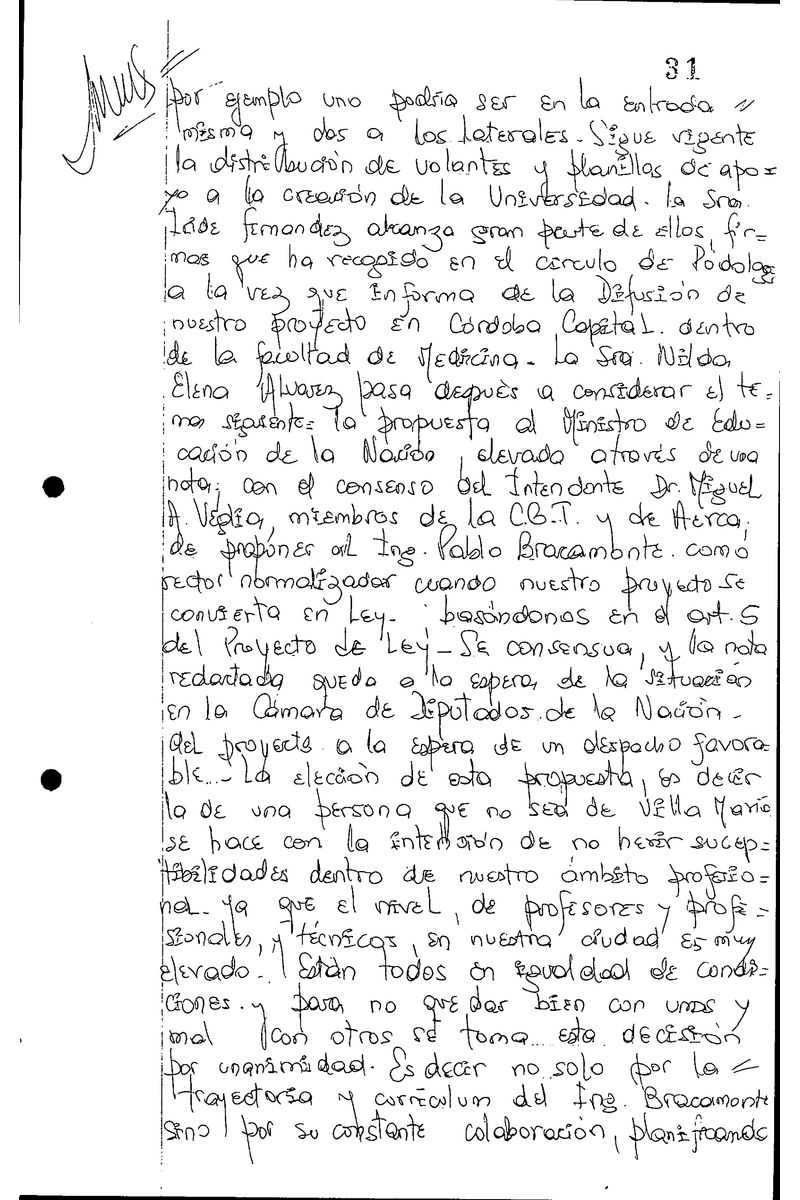 31
por ejemplo uno podría ser en la entrada =
misma y dos a los laterales. Sigue vigente
la distribución de volantes y planillas de apo=
yo a la creación de la Universidad. La Sra.
Fernandez alcanza gran parte de ellos, fir=
mas que ha recogido en el círculo de Pódolog
a la vez que informa de la Difusión de
nuestro proyecto en Córdoba Capital. dentro
de la facultad de Medicina - La Sra. Nilda
Elena Alvarez pasa después a considerar el te=
ma = la propuesta al Ministro de Edu=
cación de la Nación, elevada através de una
nota; con el consenso del Intendente Dr. Miguel
A. Veglia, miembros de la C.G.T. y de Aerca,
de propóner al Ing. Pablo Bracamonte. como
rector normalizador cuando nuestro proyecto se
convierta en Ley - basándonos en el art. 5
del Proyecto de Ley - Se consensua, y la nota
redactada queda a la espera, de la situación
en la Cámara de Diputados de la Nación -
del proyecto a la espera de un despacho favora=
ble.. - La elección de esta propuesta, es decir
la de una persona que no sea de Villa María
se hace con la intensión de no herir sucep=
tibilidades dentro de nuestro ámbito profesio=
nal - ya que el nivel, de profesores y profe=
sionales, y técnicos, en nuestra ciudad es muy
elevado - Están todos en igualdad de condi=
ciones. y para no quedar bien con unos y
mal con otros se toma esta decisión
por unanimidad. Es decir no solo por la =
trayectoria y currículum del Ing. Bracamonte
sino por su constante colaboración, planificando